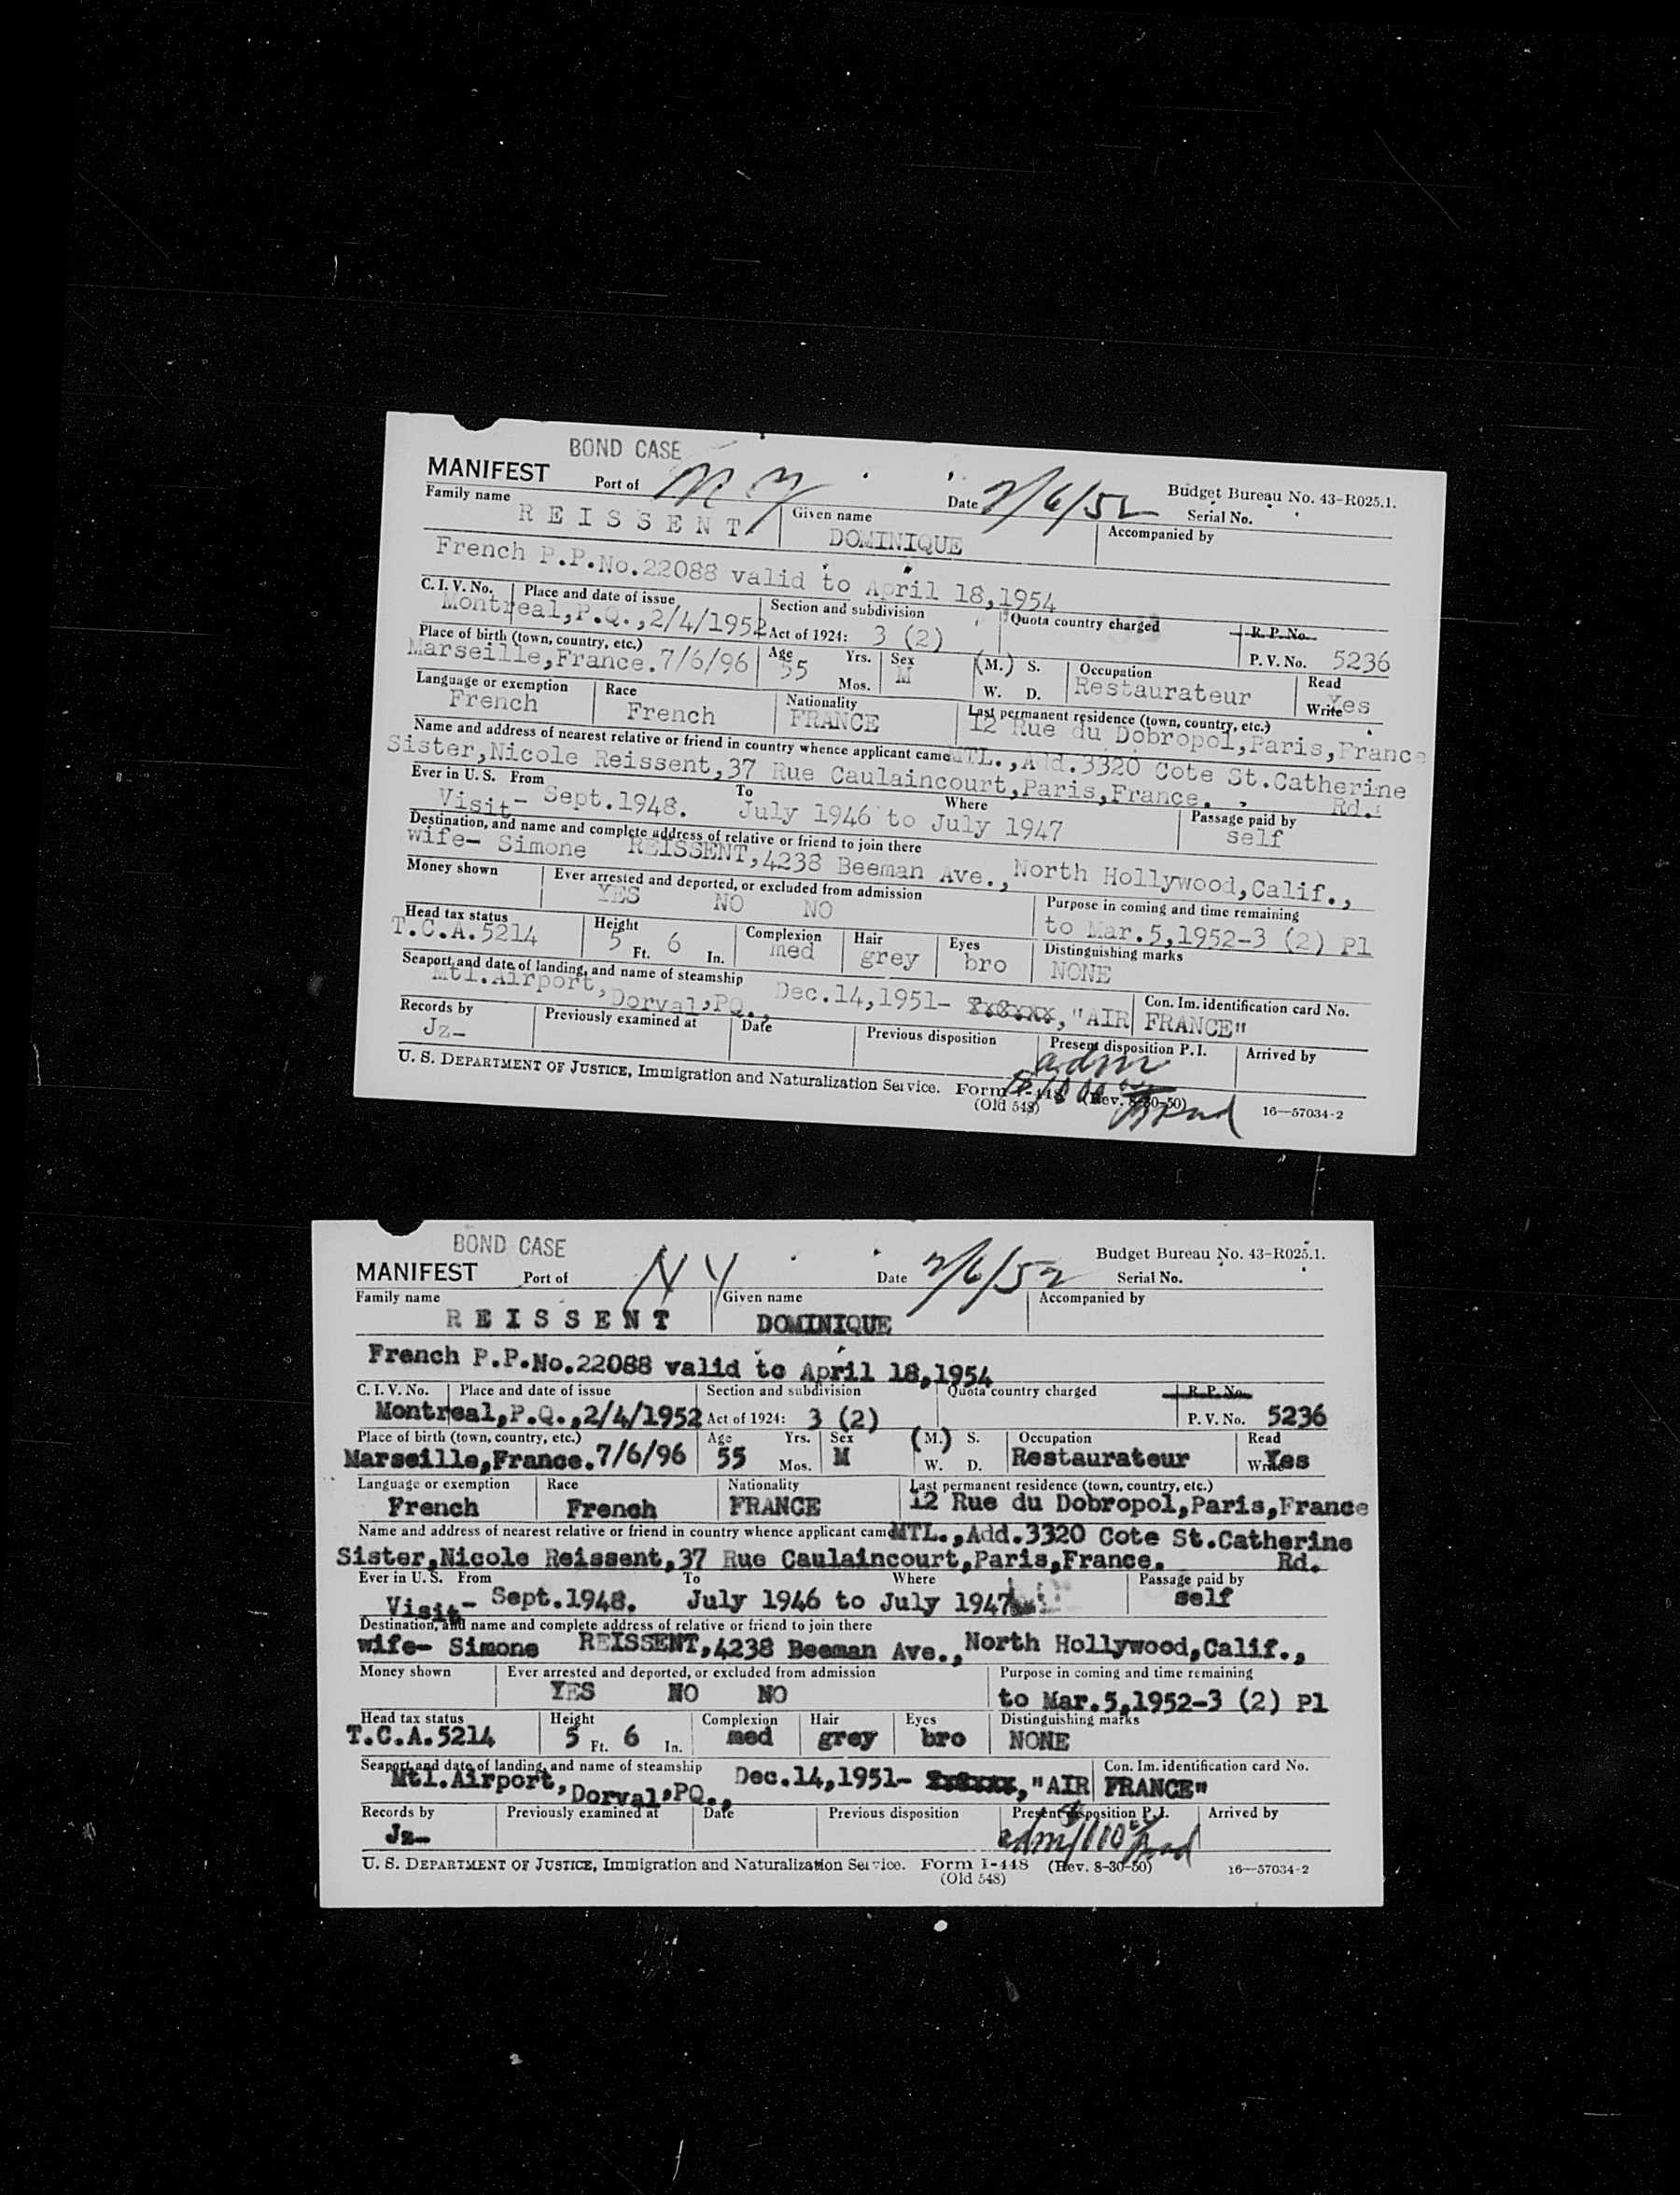 BOND CASE
MANIFEST Port of N Y Date 2/6/52 Budget Bureau No. 43-R025.1.
Serial No.
Family name Given name Accompanied by
R E I S S E N T DOMINIQUE
French P.P.No.22088 valid to April 18,1954
C. I. V. No. Place and date of issue Section and subdivision Quota country charged R. P. No.
Montreal,P.Q.,2/4/1952 Act of 1924: 3 (2) P. V. No. 5236
Place of birth (town, country, etc.) Age Yrs. Sex (M.) S. Occupation Read
Marseille,France.7/6/96 55 Mos. M W. D. Restaurateur Write Yes
Language or exemption Race Nationality Last permanent residence (town, country, etc.)
French French FRANCE 12 Rue du Dobropol,Paris,France
Name and address of nearest relative or friend in country whence applicant came MTL.,Add.3320 Cote St.Catherine
Sister,Nicole Reissent,37 Rue Caulaincourt,Paris,France. Rd.
Ever in U. S. From To Where Passage paid by
Visit- Sept.1948. July 1946 to July 1947 self
Destination, and name and complete address of relative or friend to join there
wife- Simone REISSENT,4238 Beeman Ave.,North Hollywood,Calif.,
Money shown Ever arrested and deported, or excluded from admission Purpose in coming and time remaining
YES NO NO to Mar.5,1952-3 (2) Pl
Head tax status Height Complexion Hair Eyes Distinguishing marks
T.C.A.5214 5 Ft. 6 In. med grey bro NONE
Seaport and date of landing, and name of steamship Con. Im. identification card No.
Mtl.Airport,Dorval,PQ., Dec.14,1951- ,"AIR FRANCE"
Records by Previously examined at Date Previous disposition Present disposition P. I. Arrived by
Jz- adm
U. S. DEPARTMENT OF JUSTICE, Immigration and Naturalization Service. Form I-448 (Rev. 8-30-50) 16—57034-2
(Old 548)
BOND CASE
MANIFEST Port of N Y Date 2/6/52 Budget Bureau No. 43-R025.1.
Serial No.
Family name Given name Accompanied by
R E I S S E N T DOMINIQUE
French P.P.No.22088 valid to April 18,1954
C. I. V. No. Place and date of issue Section and subdivision Quota country charged R. P. No.
Montreal,P.Q.,2/4/1952 Act of 1924: 3 (2) P. V. No. 5236
Place of birth (town, country, etc.) Age Yrs. Sex (M.) S. Occupation Read
Marseille,France.7/6/96 55 Mos. M W. D. Restaurateur Write Yes
Language or exemption Race Nationality Last permanent residence (town, country, etc.)
French French FRANCE 12 Rue du Dobropol,Paris,France
Name and address of nearest relative or friend in country whence applicant came MTL.,Add.3320 Cote St.Catherine
Sister,Nicole Reissent,37 Rue Caulaincourt,Paris,France. Rd.
Ever in U. S. From To Where Passage paid by
Visit- Sept.1948. July 1946 to July 1947 self
Destination, and name and complete address of relative or friend to join there
wife- Simone REISSENT,4238 Beeman Ave.,North Hollywood,Calif.,
Money shown Ever arrested and deported, or excluded from admission Purpose in coming and time remaining
YES NO NO to Mar.5,1952-3 (2) Pl
Head tax status Height Complexion Hair Eyes Distinguishing marks
T.C.A.5214 5 Ft. 6 In. med grey bro NONE
Seaport and date of landing, and name of steamship Con. Im. identification card No.
Mtl.Airport,Dorval,PQ., Dec.14,1951- ,"AIR FRANCE"
Records by Previously examined at Date Previous disposition Present disposition P. I. Arrived by
Jz- adm
U. S. DEPARTMENT OF JUSTICE, Immigration and Naturalization Service. Form I-448 (Rev. 8-30-50) 16—57034-2
(Old 548)